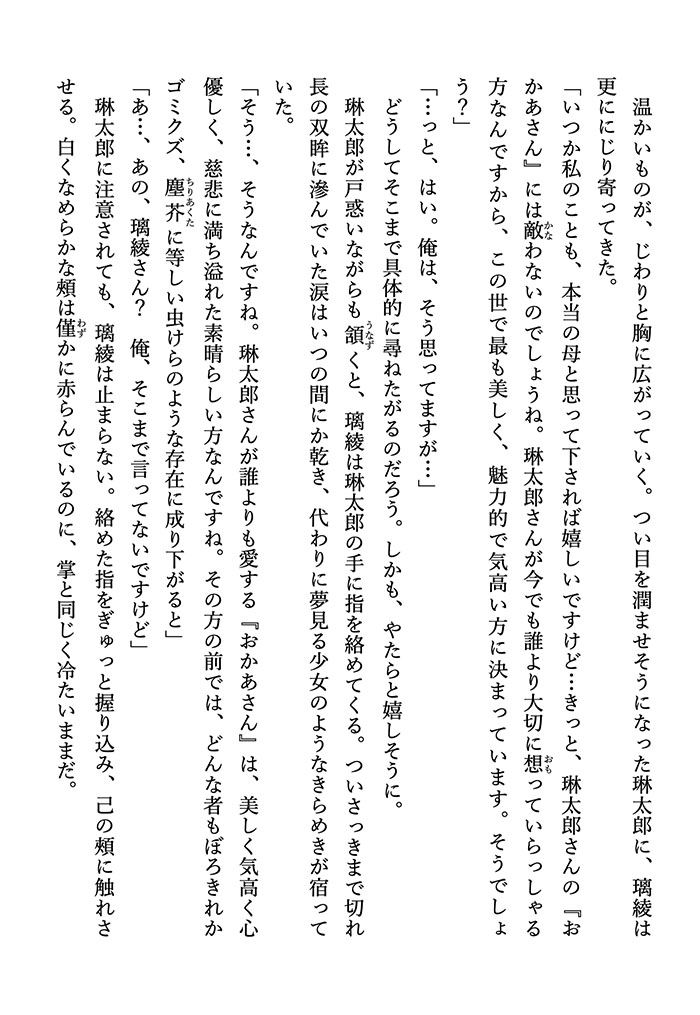 温かいものが、じわりと胸に広がっていく。つい目を潤ませそうになった琳太郎に、璃綾は
更ににじり寄ってきた。
「いつか私のことも、本当の母と思って下されば嬉しいですけど…きっと、琳太郎さんの『お
かあさん』には敵わないのでしょうね。琳太郎さんが今でも誰より大切に想っていらっしゃる
方なんですから、この世で最も美しく、魅力的で気高い方に決まっています。そうでしょ
う？」
「…っと、はい。俺は、そう思ってますが…」
どうしてそこまで具体的に尋ねたがるのだろう。しかも、やたらと嬉しそうに。
琳太郎が戸惑いながらも頷くと、璃綾は琳太郎の手に指を絡めてくる。ついさっきまで切れ
長の双眸に滲んでいた涙はいつの間にか乾き、代わりに夢見る少女のようなきらめきが宿って
いた。
「そう…、そうなんですね。琳太郎さんが誰よりも愛する『おかあさん』は、美しく気高く心
優しく、慈悲に満ち溢れた素晴らしい方なんですね。その方の前では、どんな者もぼろきれか
ゴミクズ、塵芥に等しい虫けらのような存在に成り下がると」
「あ…、あの、璃綾さん？　俺、そこまで言ってないですけど」
琳太郎に注意されても、璃綾は止まらない。絡めた指をぎゅっと握り込み、己の頬に触れさ
せる。白くなめらかな頬は僅かに赤らんでいるのに、掌と同じく冷たいままだ。